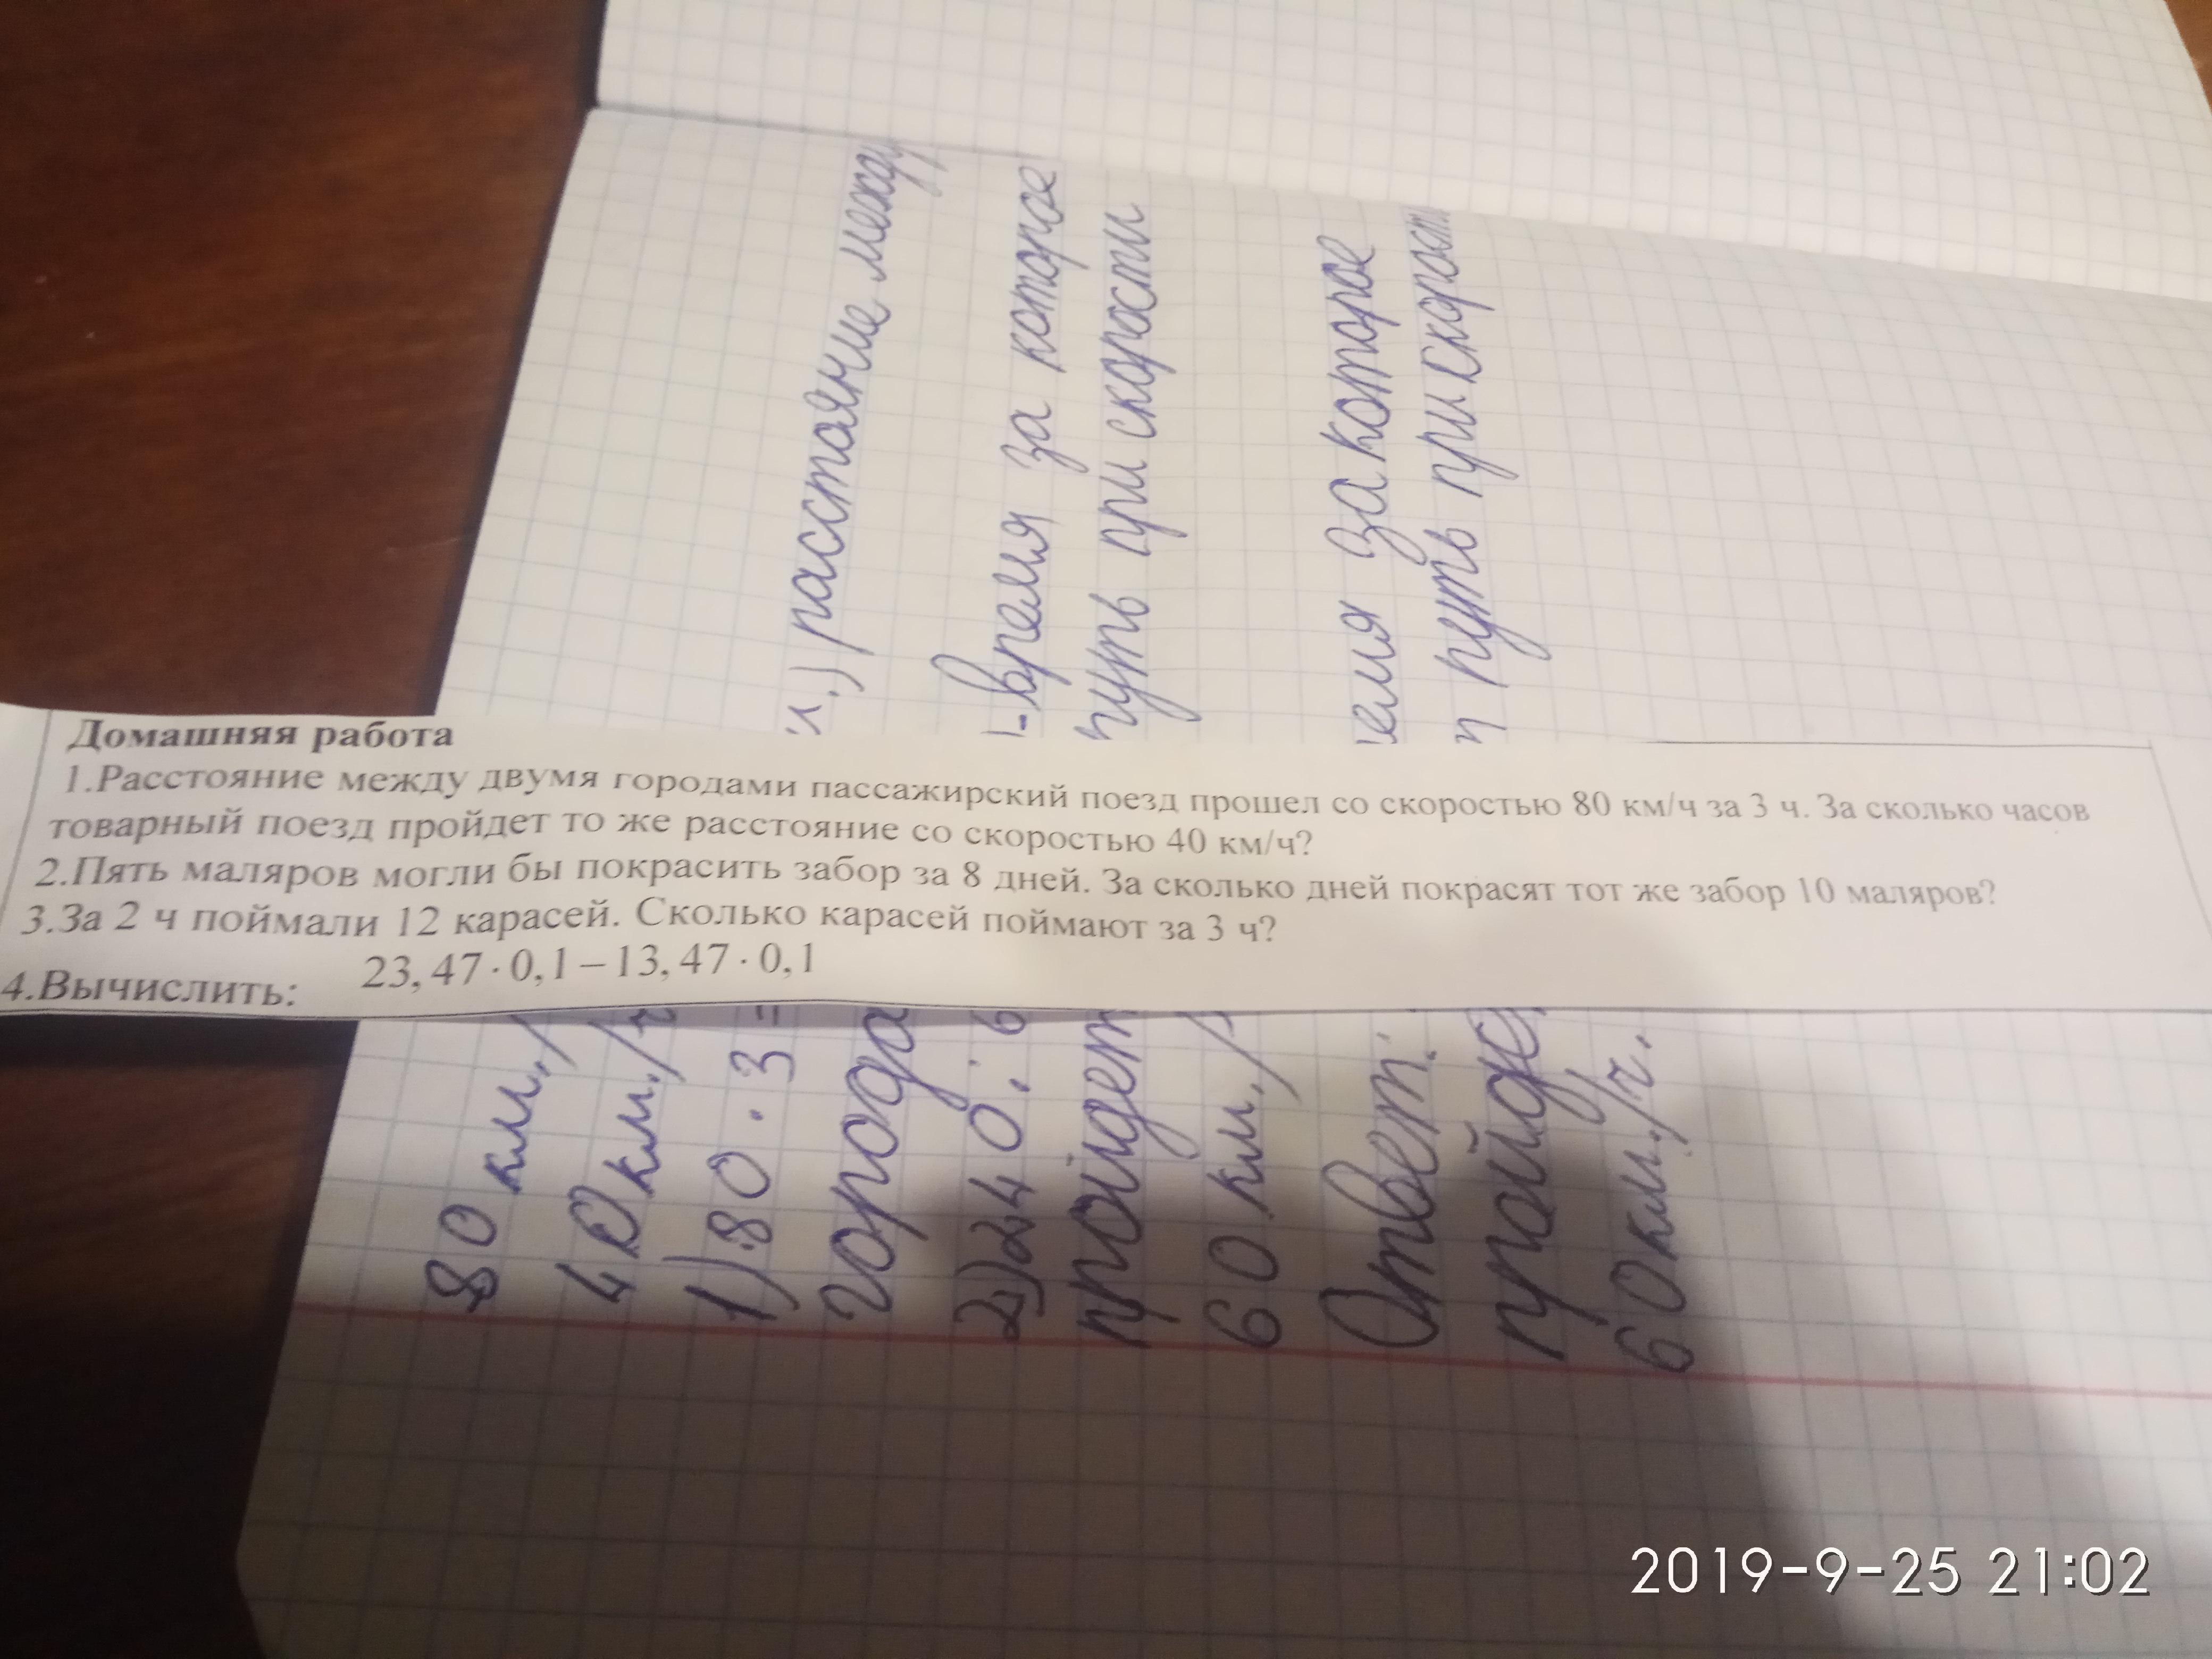 Домашняя работа
1.Расстояние между двумя городами пассажирский поезд прошел со скоростью 80 км/ч за 3 ч. За сколько часов
товарный поезд пройдет то же расстояние со скоростью 40 км/ч?
2.Пять маляров могли бы покрасить забор за 8 дней. За сколько дней покрасят тот же забор 10 маляров?
3.За 2 ч поймали 12 карасей. Сколько карасей поймают за 3 ч?
4.Вычислить: 23,47·0,1–13,47·0,1
80 км./
40 км./ч
1) 80 · 3 = расстояние между
города
2) 240 : 6 - время за которое
пройдет путь при скорости
60 км./
Ответ: за которое
путь при скорост
60 км./ч.
2019-9-25 21:02